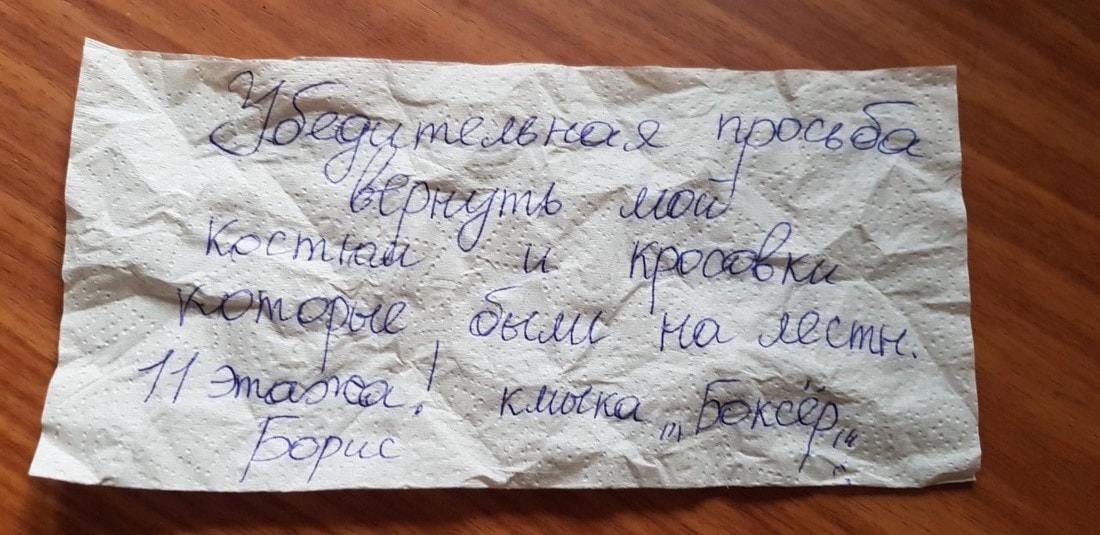 Убедительная просьба
вернуть мой
костюм и кросовки
которые были на лестн.
11 этажа! клычка „Боксёр„
Борис